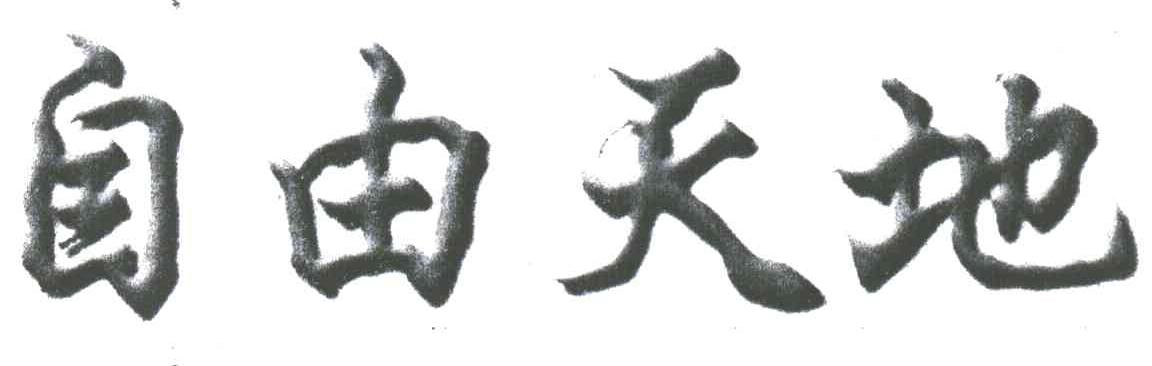 自由天地